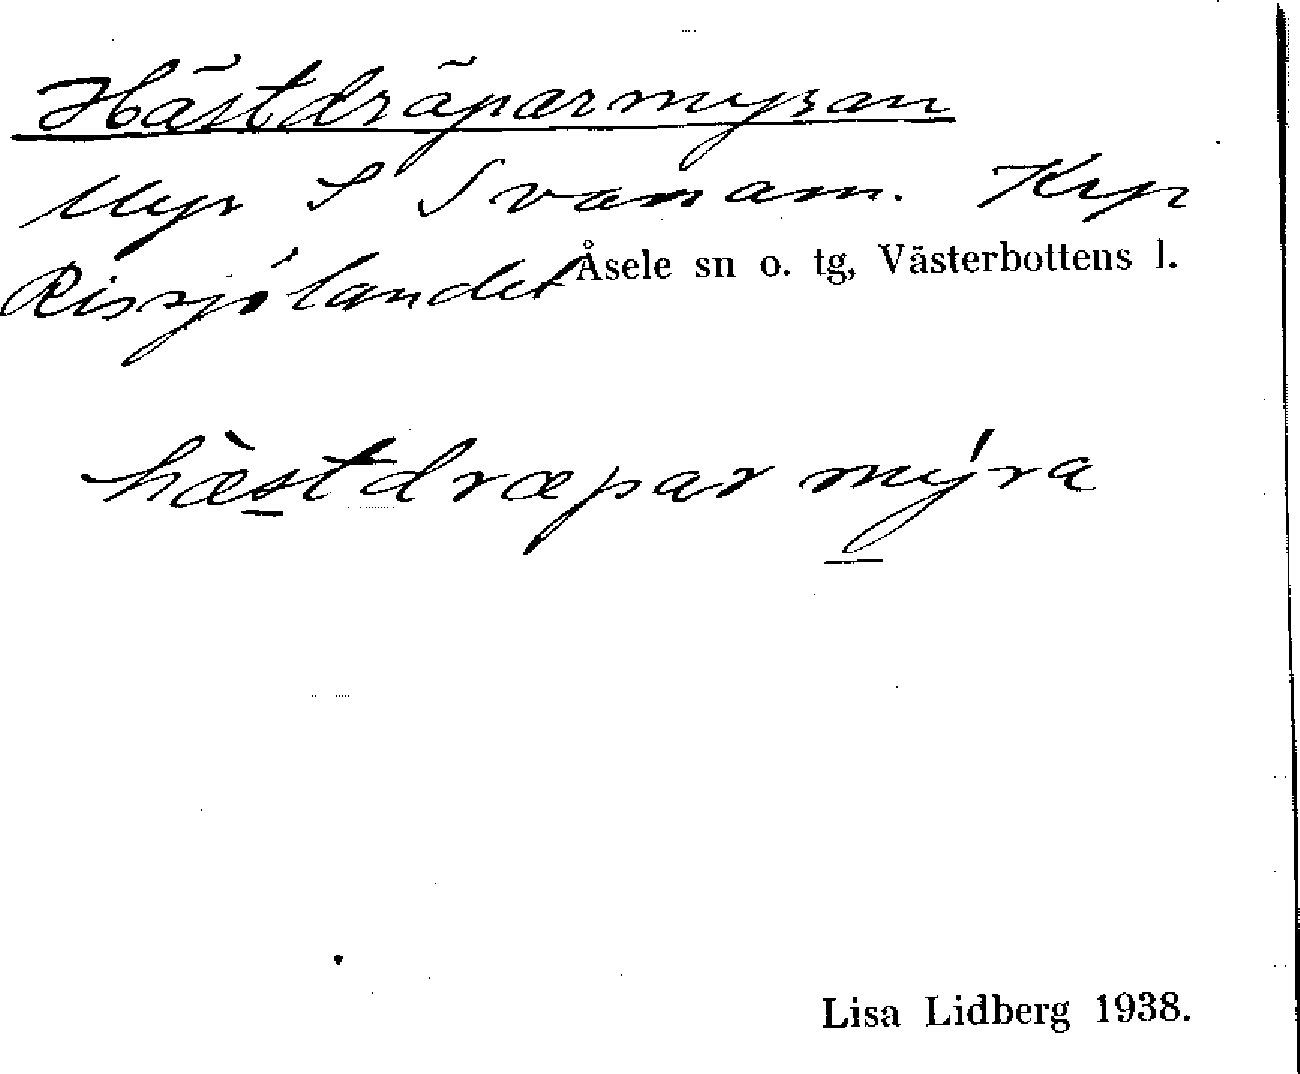 Hästdräparmyran
Myr S Svanam. Krp
Rissjölandet Åsele sn o. tg, Västerbottens l.
hæ̀stdræpar mýra
Lisa Lidberg 1938.